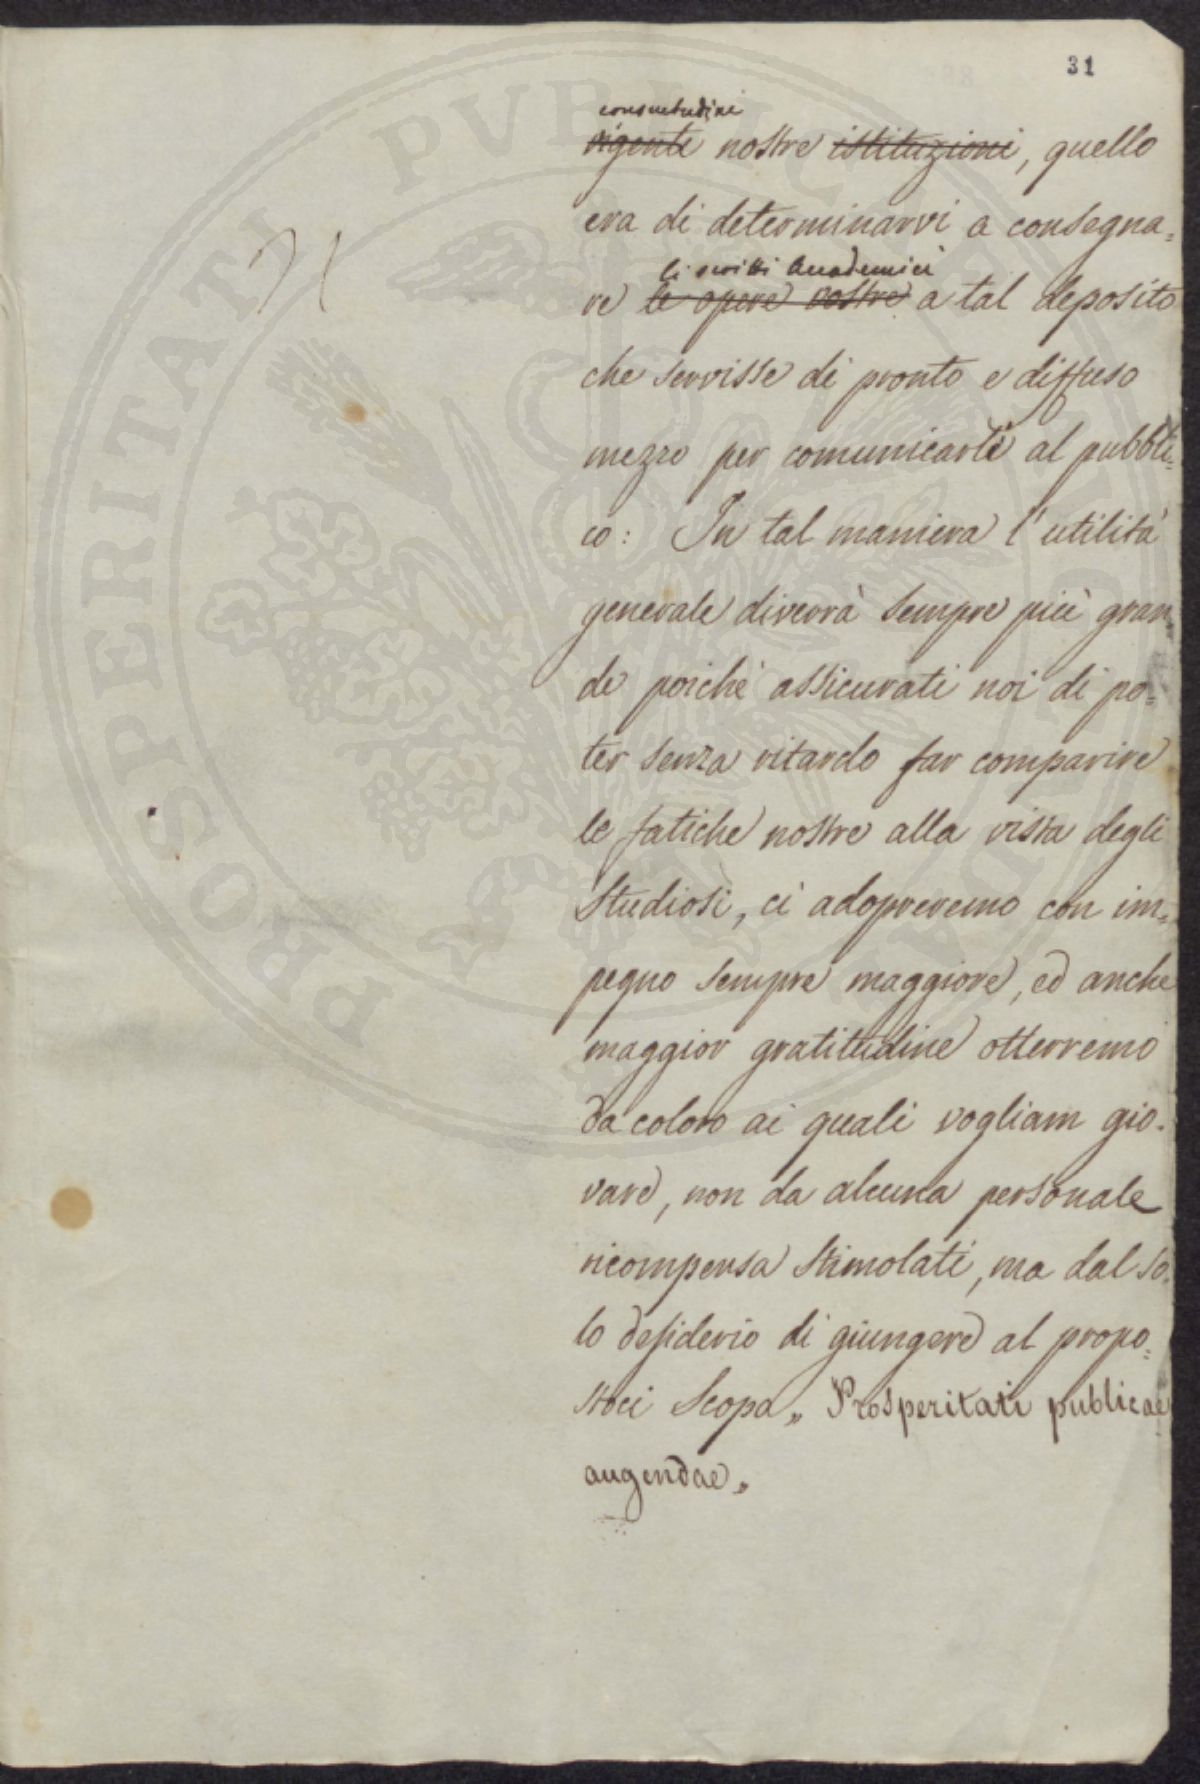 31
consuetudini
vigente nostre istituzioni, quello
era di determinarvi a consegna=
li scritti Accademici
re le opere vostre a tal deposito
che servisse di pronto e diffuso
mezzo per comunicarli al pubbli=
co: In tal maniera l'utilità
generale diverrà sempre più gran=
de poichè assicurati noi di po=
ter senza ritardo far comparire
le fatiche nostre alla vista degli
Studiosi, ci adopreremo con im=
pegno sempre maggiore, ed anche
maggior gratitudine otterremo
da coloro ai quali vogliam gio=
vare, non da alcuna personale
ricompensa stimolati, ma dal so=
lo desiderio di giungere al propo=
stoci Scopo „ Prosperitati publicae
augendae „
PROSPERITATI PVBLICAE AVGENDAE